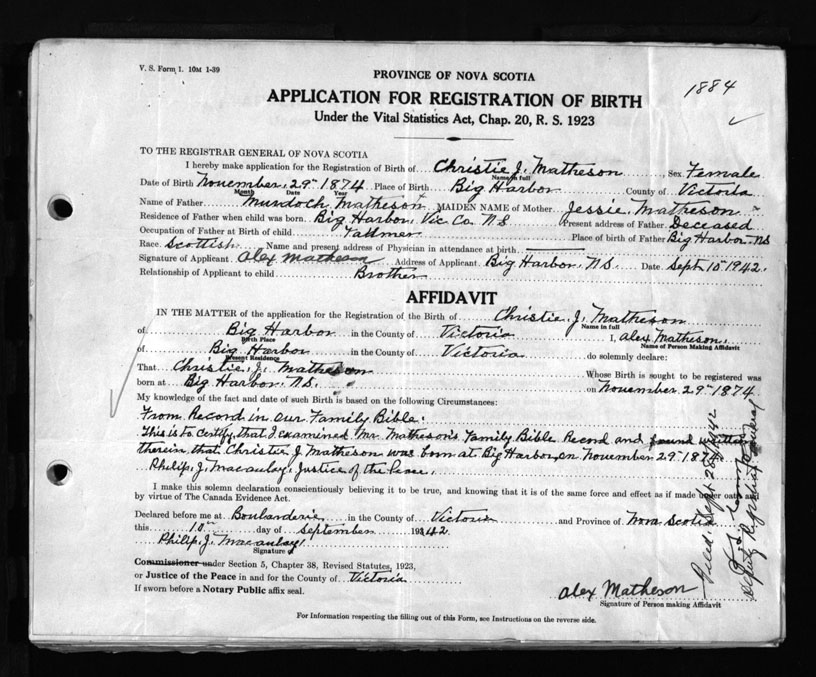 V. S. Form 1. 10M 1-39
1884
PROVINCE OF NOVA SCOTIA
APPLICATION FOR REGISTRATION OF BIRTH
Under the Vital Statistics Act, Chap. 20, R. S. 1923
TO THE REGISTRAR GENERAL OF NOVA SCOTIA
I hereby make application for the Registration of Birth of Christie J. Matheson Sex Female
Name in full
Date of Birth November 29" 1874 Place of Birth Big Harbor County of Victoria
Month Day Year
Name of Father Murdoch Matheson MAIDEN NAME of Mother Jessie Matheson
Residence of Father when child was born Big Harbor, Vic Co. N S Present address of Father Deceased
Occupation of Father at Birth of child Place of birth of Father Big Harbor. NS
Race Scottish Name and present address of Physician in attendance at birth
Signature of Applicant Alex Matheson Address of Applicant Big Harbor, N.S. Date Sept 10" 1942.
Relationship of Applicant to child Brother
AFFIDAVIT
IN THE MATTER of the application for the Registration of the Birth of Christie. J. Matheson
Name in full
of Big Harbor in the County of Victoria I, Alex Matheson
Birth Place Name of Person Making Affidavit
of Big Harbor in the County of Victoria do solemnly declare:
Present Residence
That Christie. J. Matheson Whose Birth is sought to be registered was
born at Big Harbor. N.S. on November 29" 1874
My knowledge of the fact and date of such Birth is based on the following Circumstances:
From Record in our Family Bible.
This is to certify that I examined Mr Matheson's Family Bible Record and found written
therein that Christie J Matheson was born at Big Harbor on November 29" 1874.
Philip. J. Macaulay. Justice of the Peace.
I make this solemn declaration conscientiously believing it to be true, and knowing that it is of the same force and effect as if made under oath and
by virtue of The Canada Evidence Act.
Declared before me at Boularderie in the County of Victoria and Province of Nova Scotia
this 10" day of September 1942.
Philip. J. Macaulay
Signature of
Commissioner under Section 5, Chapter 38, Revised Statutes, 1923,
or Justice of the Peace in and for the County of Victoria
If sworn before a Notary Public affix seal.
Alex Matheson
Signature of Person making Affidavit
For Information respecting the filling out of this Form, see Instructions on the reverse side.
Filed Sept 28 1942
Deputy Registrar General